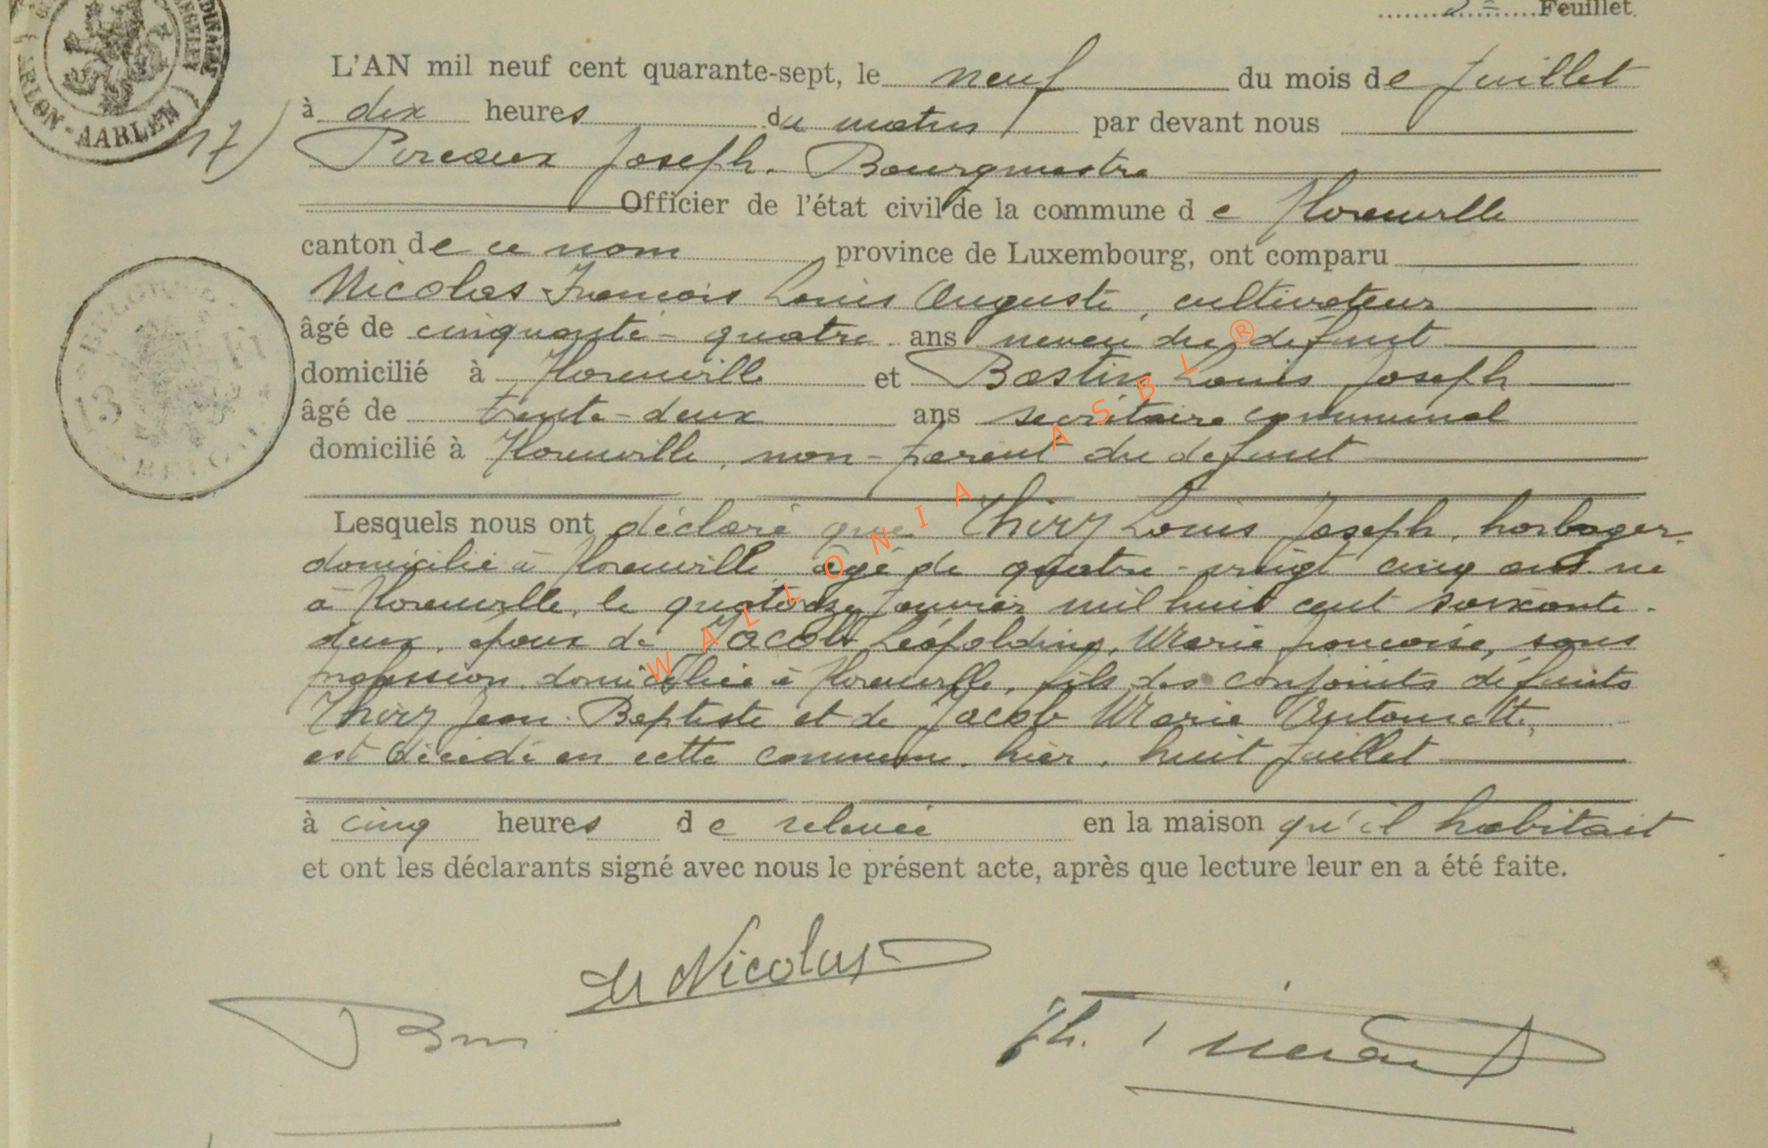 Feuillet
L'AN mil neuf cent quarante-sept, le neuf du mois de Juillet
à dix heures du matin par devant nous
17) Pireaux Joseph. Bourgmestre
Officier de l'état civil de la commune de Florenville
canton de ce nom province de Luxembourg, ont comparu
Nicolas François Louis Auguste, cultivateur
âgé de cinquante-quatre ans neveu du défunt
domicilié à Florenville et Bastin Louis Joseph
âgé de trente-deux ans secrétaire communal
domicilié à Florenville, non-parent du défunt
Lesquels nous ont déclaré que Thiry Louis Joseph, horloger
domicilié à Florenville âgé de quatre-vingt cinq ans né
à Florenville, le quatorze Janvier mil huit cent soixante-
deux, époux de Jacob Léopoldine, Marie, Françoise, sans
profession domiciliée à Florenville, fils des conjoints défunts
Thiry Jean-Baptiste et de Jacob Marie Antoinette,
est décédé en cette commune, hier, huit Juillet
à cinq heures de relevée en la maison qu'il habitait
et ont les déclarants signé avec nous le présent acte, après que lecture leur en a été faite.
Nicolas
ARLON-AARLEN
BELGIQUE
BELGIE
WALLONIA ASBL ®